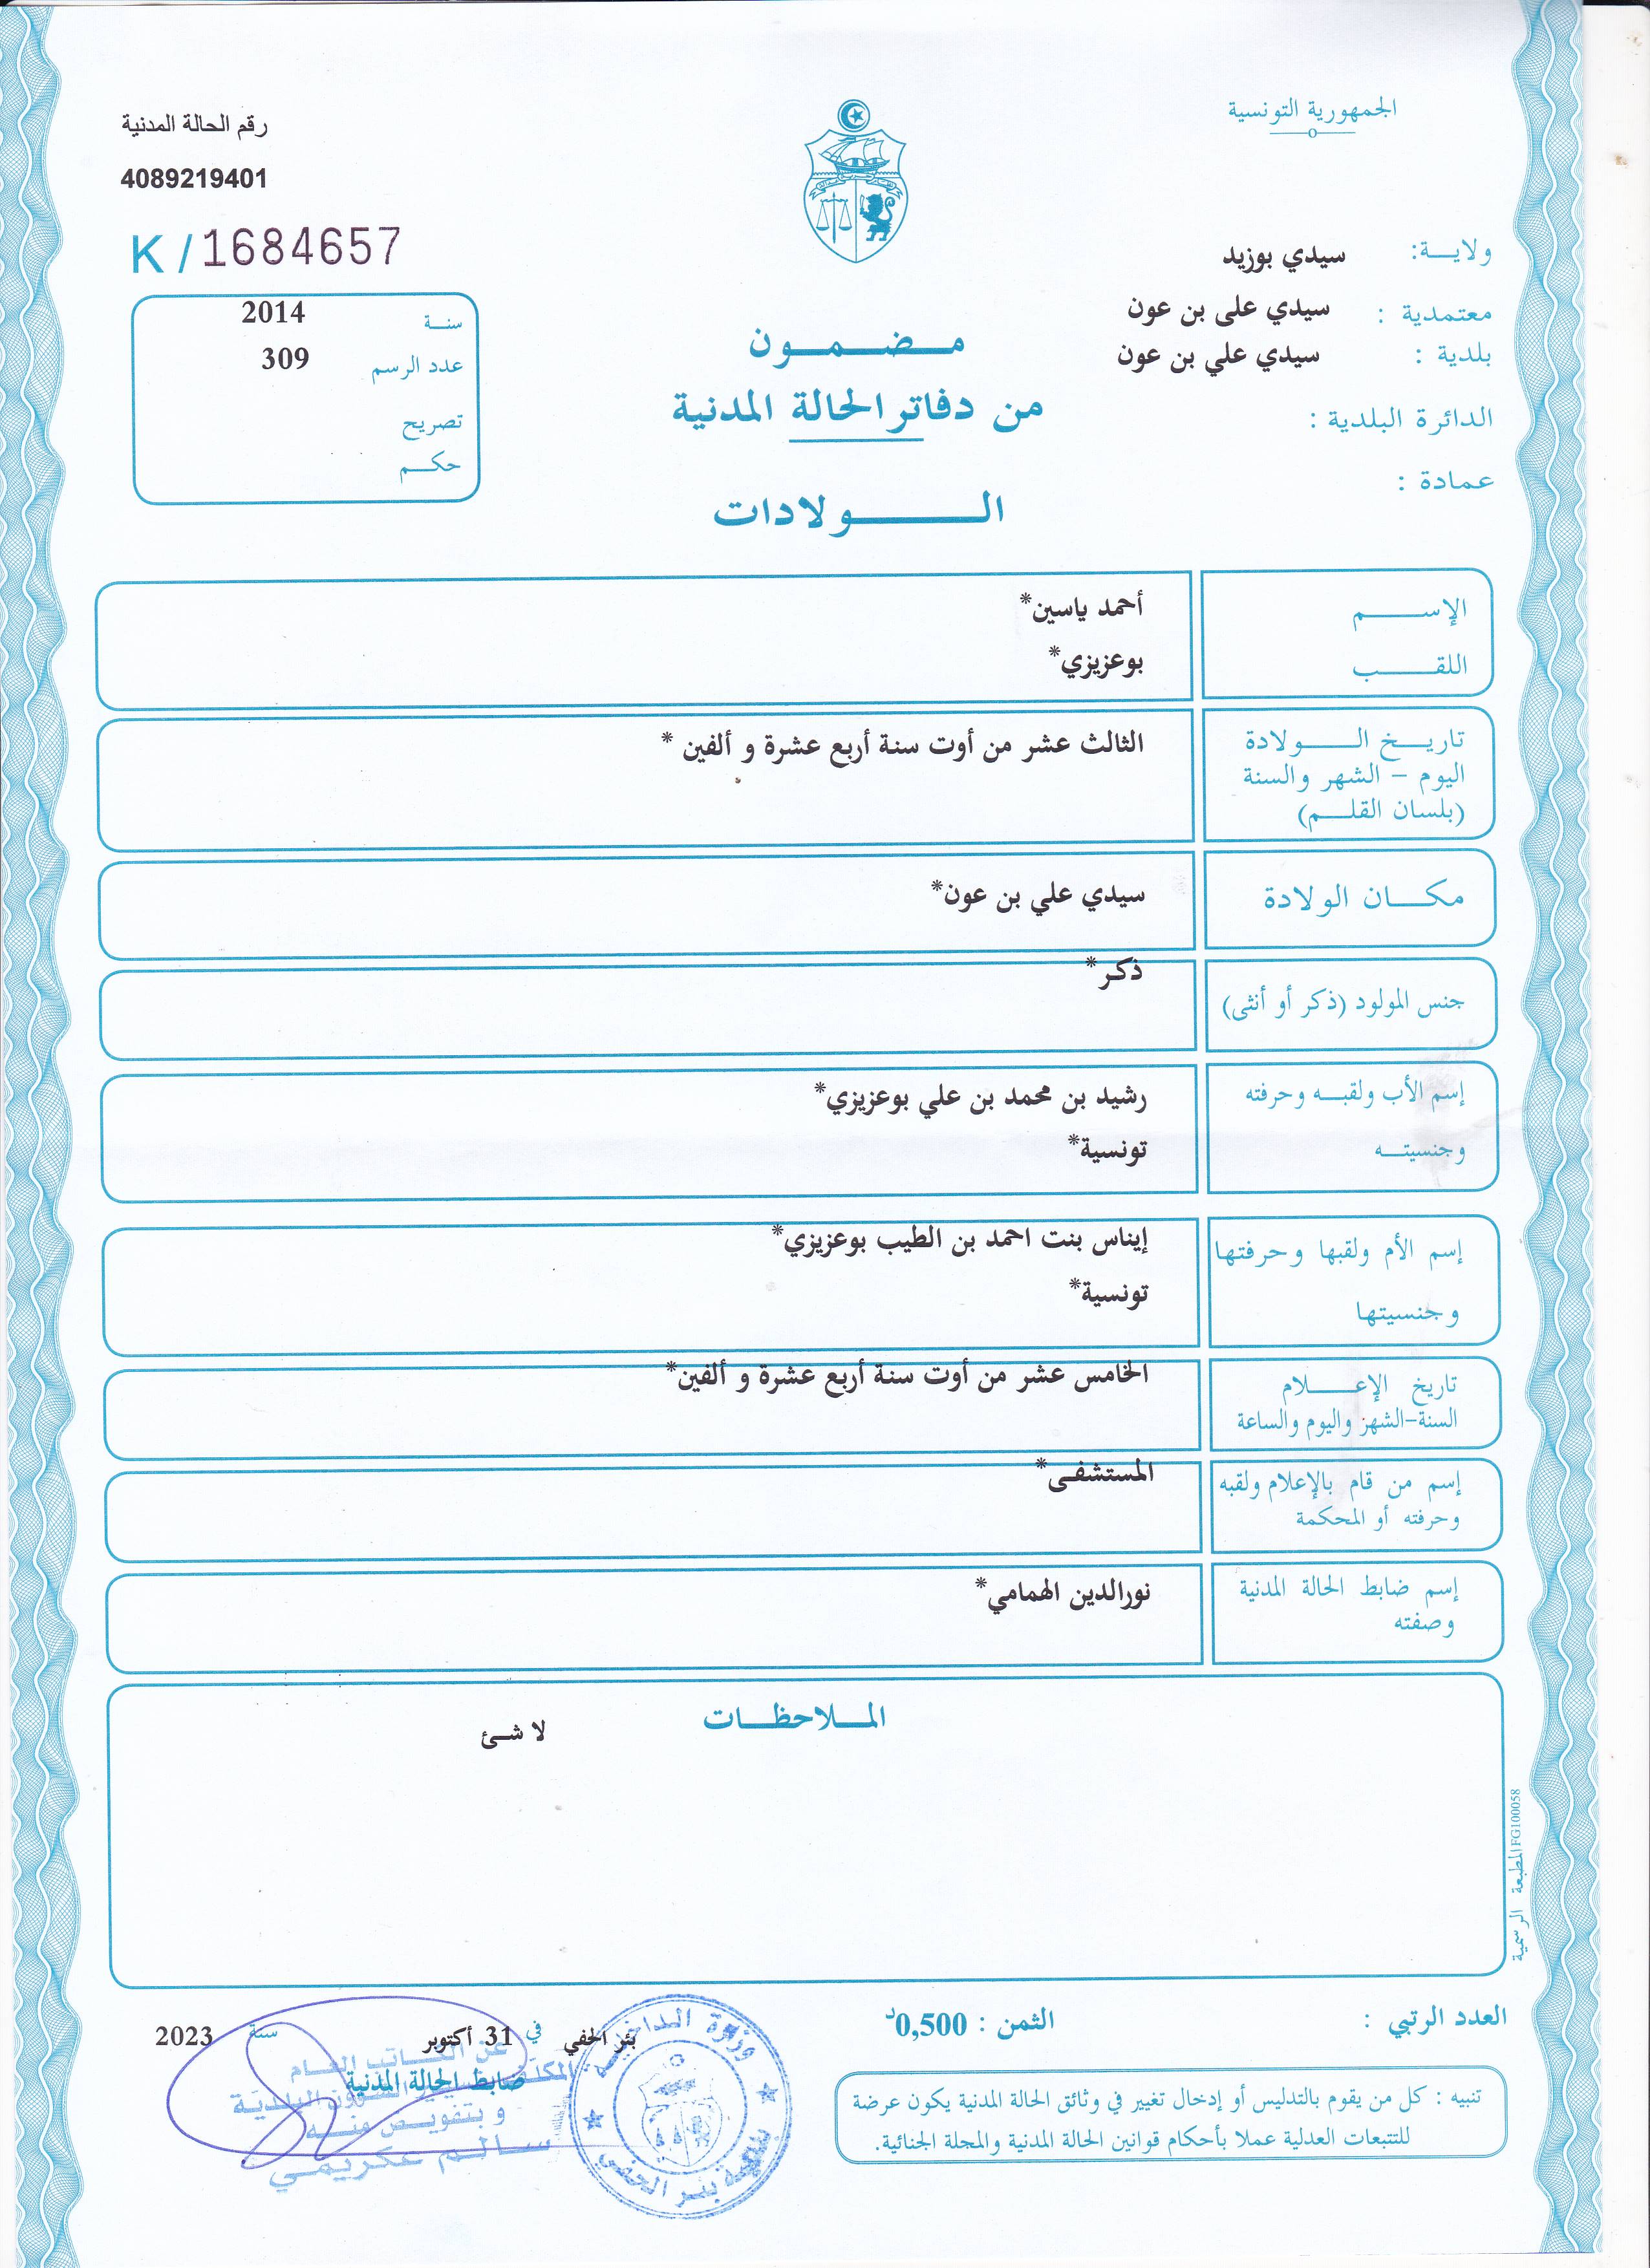 الجمهورية التونسية
رقم الحالة المدنية
4089219401
K / 1684657
ولايــة: سيدي بوزيد
معتمدية : سيدي على بن عون
بلدية : سيدي علي بن عون
الدائرة البلدية :
عمادة :
سنــة 2014
عدد الرسم 309
تصريح
حكــم
مــضــمــون
من دفاتر الحالة المدنية
الــــولادات
الإســــم أحمد ياسين*
اللقــــب بوعزيزي*
تاريــخ الــــولادة الثالث عشر من أوت سنة أربع عشرة و ألفين *
اليوم – الشهر والسنة
(بلسان القلــم)
مكـــان الولادة سيدي علي بن عون*
جنس المولود (ذكر أو أنثى) ذكر*
إسم الأب ولقبــه وحرفته رشيد بن محمد بن علي بوعزيزي*
وجنسيتــه تونسية*
إسم الأم ولقبها وحرفتها إيناس بنت احمد بن الطيب بوعزيزي*
وجنسيتها تونسية*
تاريخ الإعــــلام الخامس عشر من أوت سنة أربع عشرة و ألفين*
السنة-الشهر واليوم والساعة
إسم من قام بالإعلام ولقبه المستشفى*
وحرفته أو المحكمة
إسم ضابط الحالة المدنية نورالدين الهمامي*
وصفته
المــلاحظــات
لا شئ
المطبعة الرسمية FG100058
العدد الرتبي :
الثمن : 0,500د
بئر الحفي في 31 أكتوبر سنة 2023
ضابط الحالة المدنية
عن الكاتب العام
المكلف الشؤون البلدية
و بتفويض منه
سالم عكريمي
وزارة الداخلية
بلدية بئر الحفي
تنبيه : كل من يقوم بالتدليس أو إدخال تغيير في وثائق الحالة المدنية يكون عرضة
للتتبعات العدلية عملا بأحكام قوانين الحالة المدنية والمجلة الجنائية.